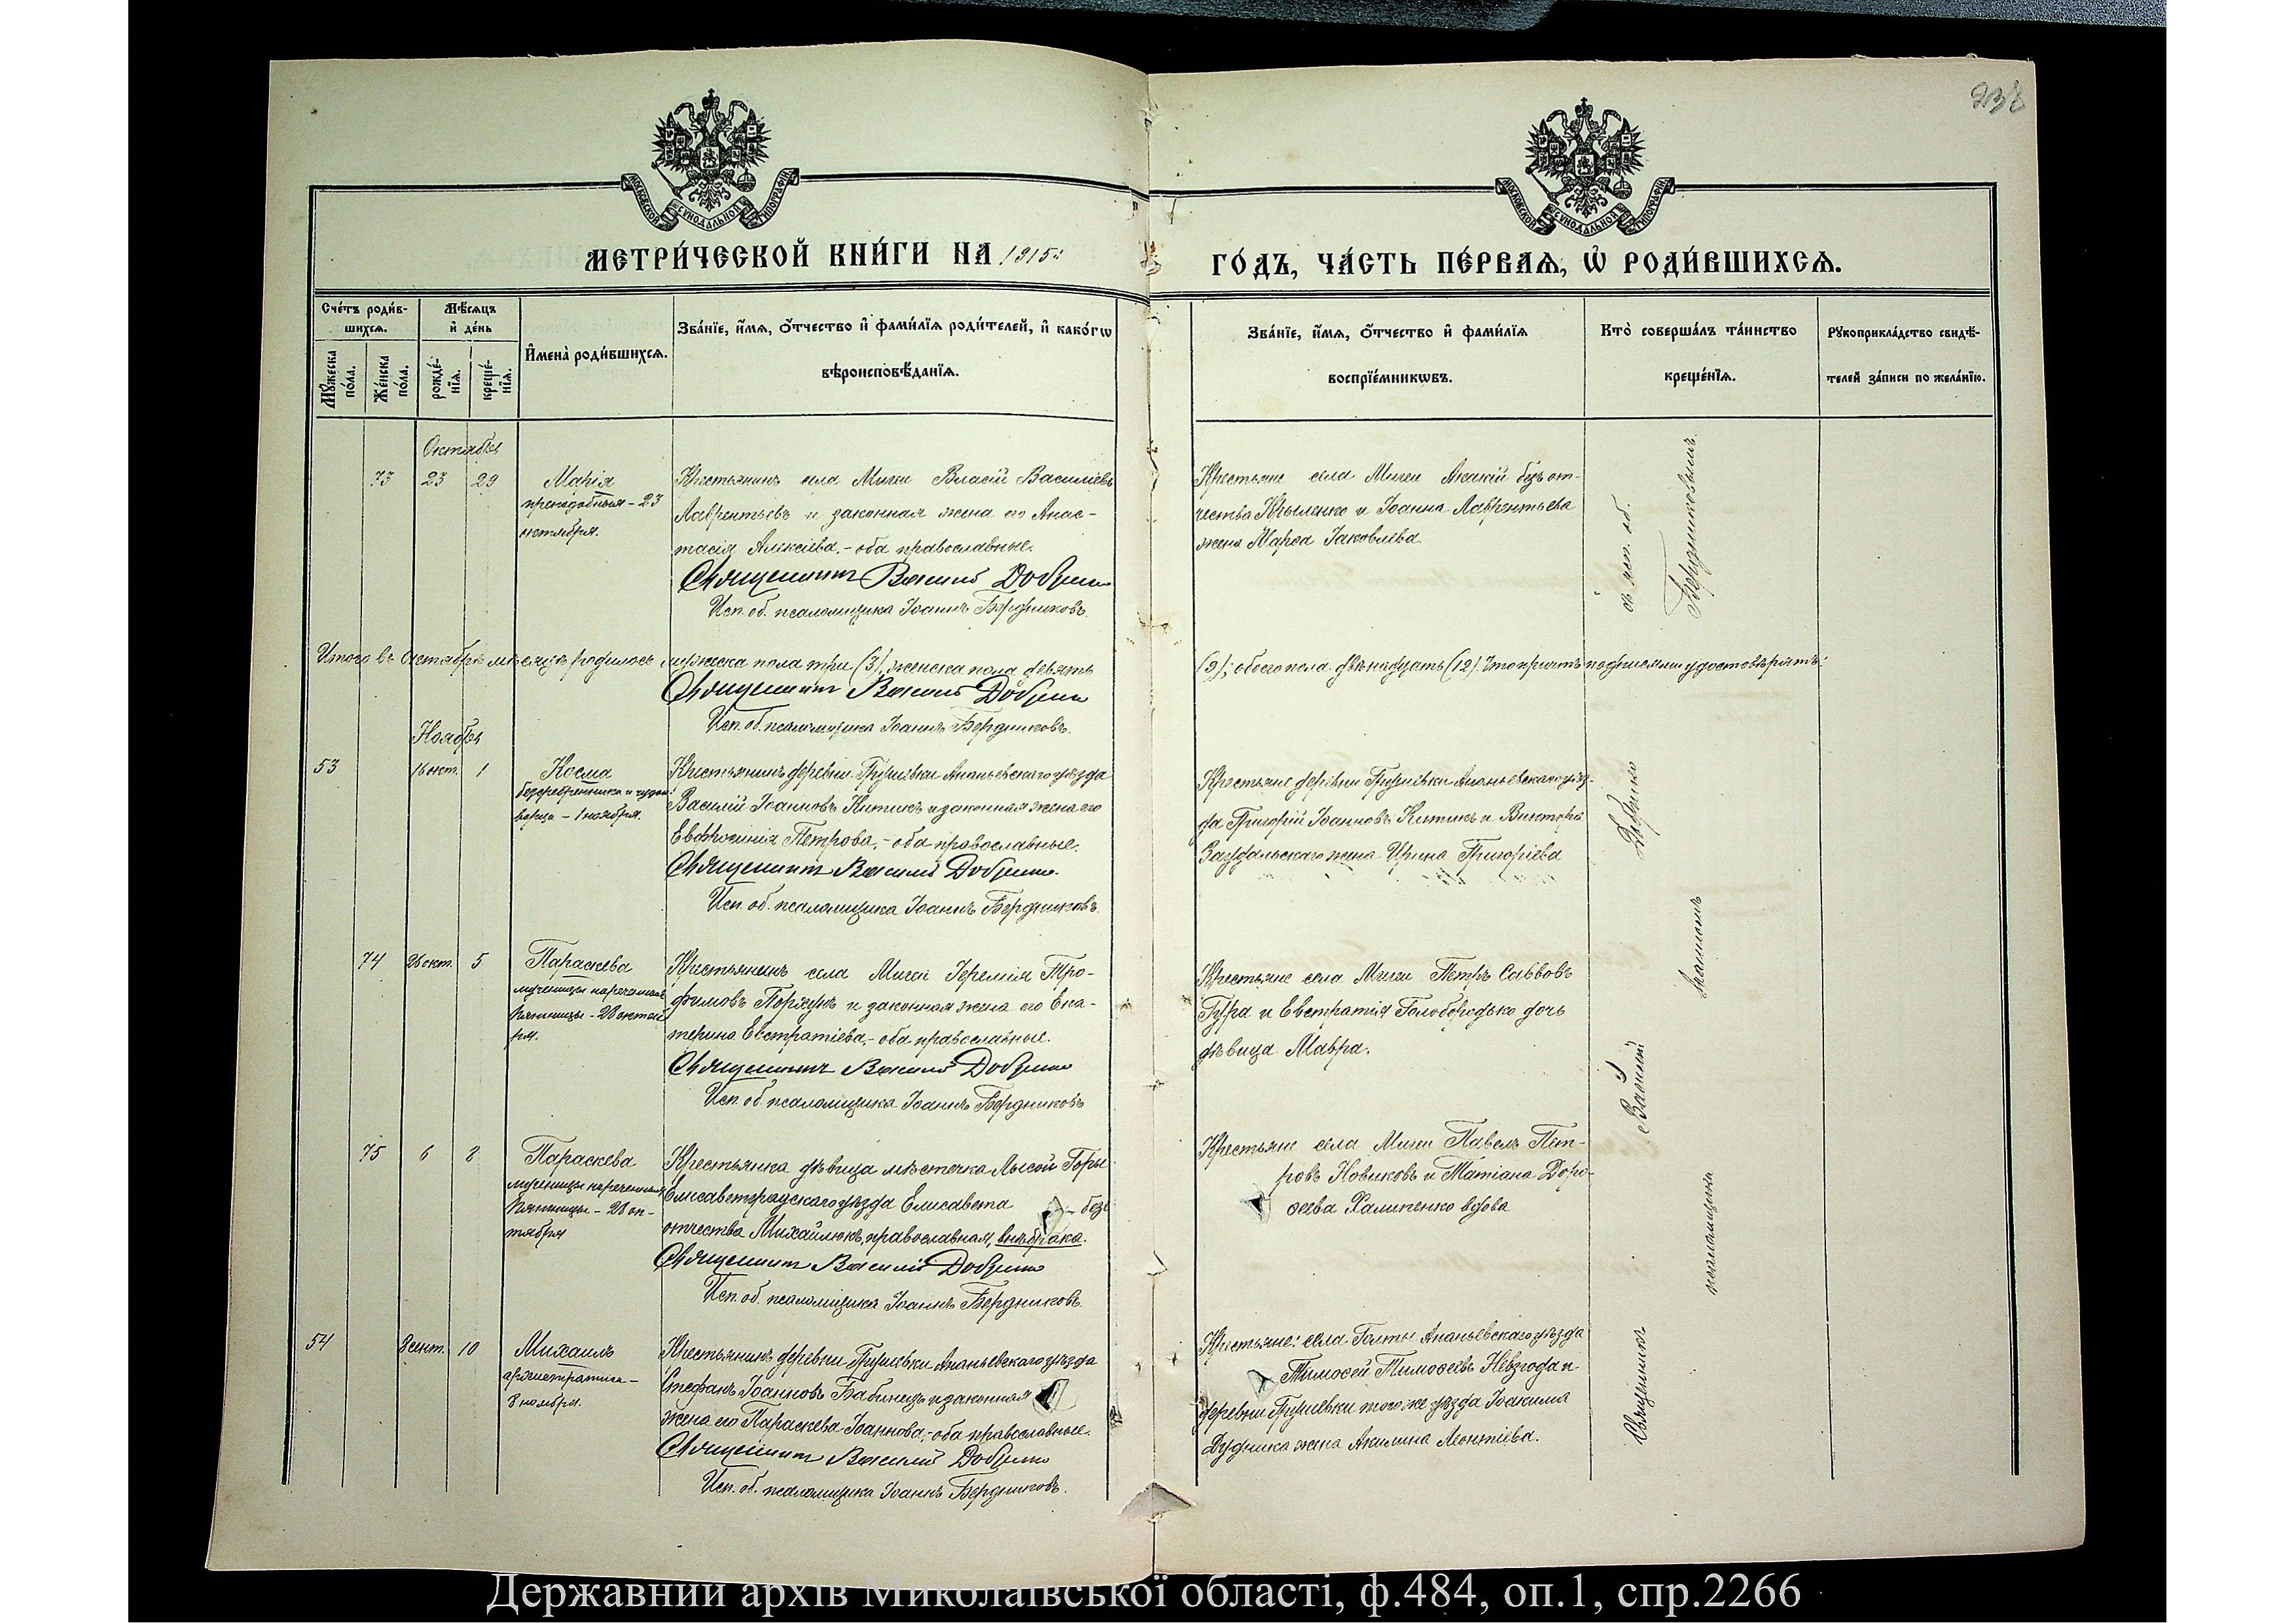 238
МОСКОВСКОЙ СѴНОДАЛЬНОЙ ТИПОГРАФІИ
МОСКОВСКОЙ СѴНОДАЛЬНОЙ ТИПОГРАФІИ
МЕТРИ́ЧЕСКОЙ КНИ́ГИ НА 1915:
ГО́ДЪ, ЧА́СТЬ ПЕ́РВАѦ, Ѡ҆ РОДИ́ВШИХСѦ.
Сче́тъ роди́в-
шихсѧ.
Мѣ́сѧцъ
и҆ де́нь
Мꙋ́жеска по́ла.
Же́нска по́ла.
рожде́-
нїѧ.
креще́-
нїѧ.
И҆мена̀ роди́вшихсѧ.
Зва́нїе, и҆́мѧ, ѻ҆́тчество и҆ фами́лїѧ роди́телей, и҆ како́гѡ
вѣроисповѣ́данїѧ.
Зва́нїе, и҆́мѧ, ѻ҆́тчество и҆ фами́лїѧ
воспрїе́мникѡвъ.
Кто̀ соверша́лъ та́инство
креще́нїѧ.
Рꙋкоприкла́дство свидѣ́-
телей за́писи по жела́нїю.
Октябрь
73 23 29 Марія
преподобныя - 23
октября.
Крестьянинъ села Мигеи Власій Василіевъ
Лаврентьевъ и законная жена его Анас-
тасія Алексіева, - оба православные.
Священникъ Василій Добренко
Исп. об. псаломщика Іоаннъ Бердниковъ.
Крестьяне села Мигеи Акакій безъ от-
чества Крыленко и Іоанна Лаврентьева
жена Марѳа Іаковлева.
Итого въ октябрѣ мѣсяцѣ родилось мужеска пола три (3), женска пола девять
(9); обоего пола двѣнадцать (12). Что причтъ подписями удостовѣряетъ:
Священникъ Василій Добренко
Исп. об. псаломщика Іоаннъ Бердниковъ.
Ноябрь
53 16 окт. 1 Косма
безсребренника и чудо-
ворца - 1 ноября.
Крестьянинъ деревни Грушевки Ананьевскаго уѣзда
Василій Іоанновъ Китикъ и законная жена его
Евфросинія Петрова, - оба православные.
Священникъ Василій Добренко.
Исп. об. псаломщика Іоаннъ Бердниковъ.
Крестьяне деревни Грушевки Ананьевскаго уѣз-
да Григорій Іоанновъ Китикъ и Виктора
жена Ирина Григоріева
74 26 окт. 5 Параскева
мученицы нареченныя
Пятницы - 28 октяб-
ря.
Крестьянинъ села Мигеи Іеремія Тро-
фимовъ и законная жена его Ека-
терина Евстратіева, - оба православные.
Священникъ Василій Добренко
Исп. об. псаломщика Іоаннъ Бердниковъ
Крестьяне села Мигеи Петръ Саввовъ
Гура и Евстратія Голобородько дочь
дѣвица Мавра.
75 6 8 Параскева
мученицы нареченныя
Пятницы - 28 ок-
тября
Крестьянка дѣвица мѣстечка Лысой Горы
Елисаветградскаго уѣзда Елисавета - безъ
отчества Михайлюкъ, православная, внѣ брака.
Священникъ Василій Добренко
Исп. об. псаломщика Іоаннъ Бердниковъ.
Крестьяне села Мигеи Павелъ Пет-
ровъ Новиковъ и Татіана Доро-
ѳеева Халипенко вдова
54 8 сент. 10 Михаилъ
архистратига -
8 ноября.
Крестьянинъ деревни Грушевки Ананьевскаго уѣзда
Стефанъ Іоанновъ Бабинецъ и законная
жена его Параскева Іоаннова, - оба православные.
Священникъ Василій Добренко
Исп. об. псаломщика Іоаннъ Бердниковъ.
Крестьяне: села Голты Ананьевскаго уѣзда
Тимоѳей Тимоѳеевъ Невзгода и
деревни Грушевки того же уѣзда Іоакима
Дудника жена Акилина Леонтіева.
Священникъ Василій Добренко
съ исп. об. псаломщика Іоанномъ Бердниковымъ.
Державний архів Миколаївської області, ф.484, оп.1, спр.2266